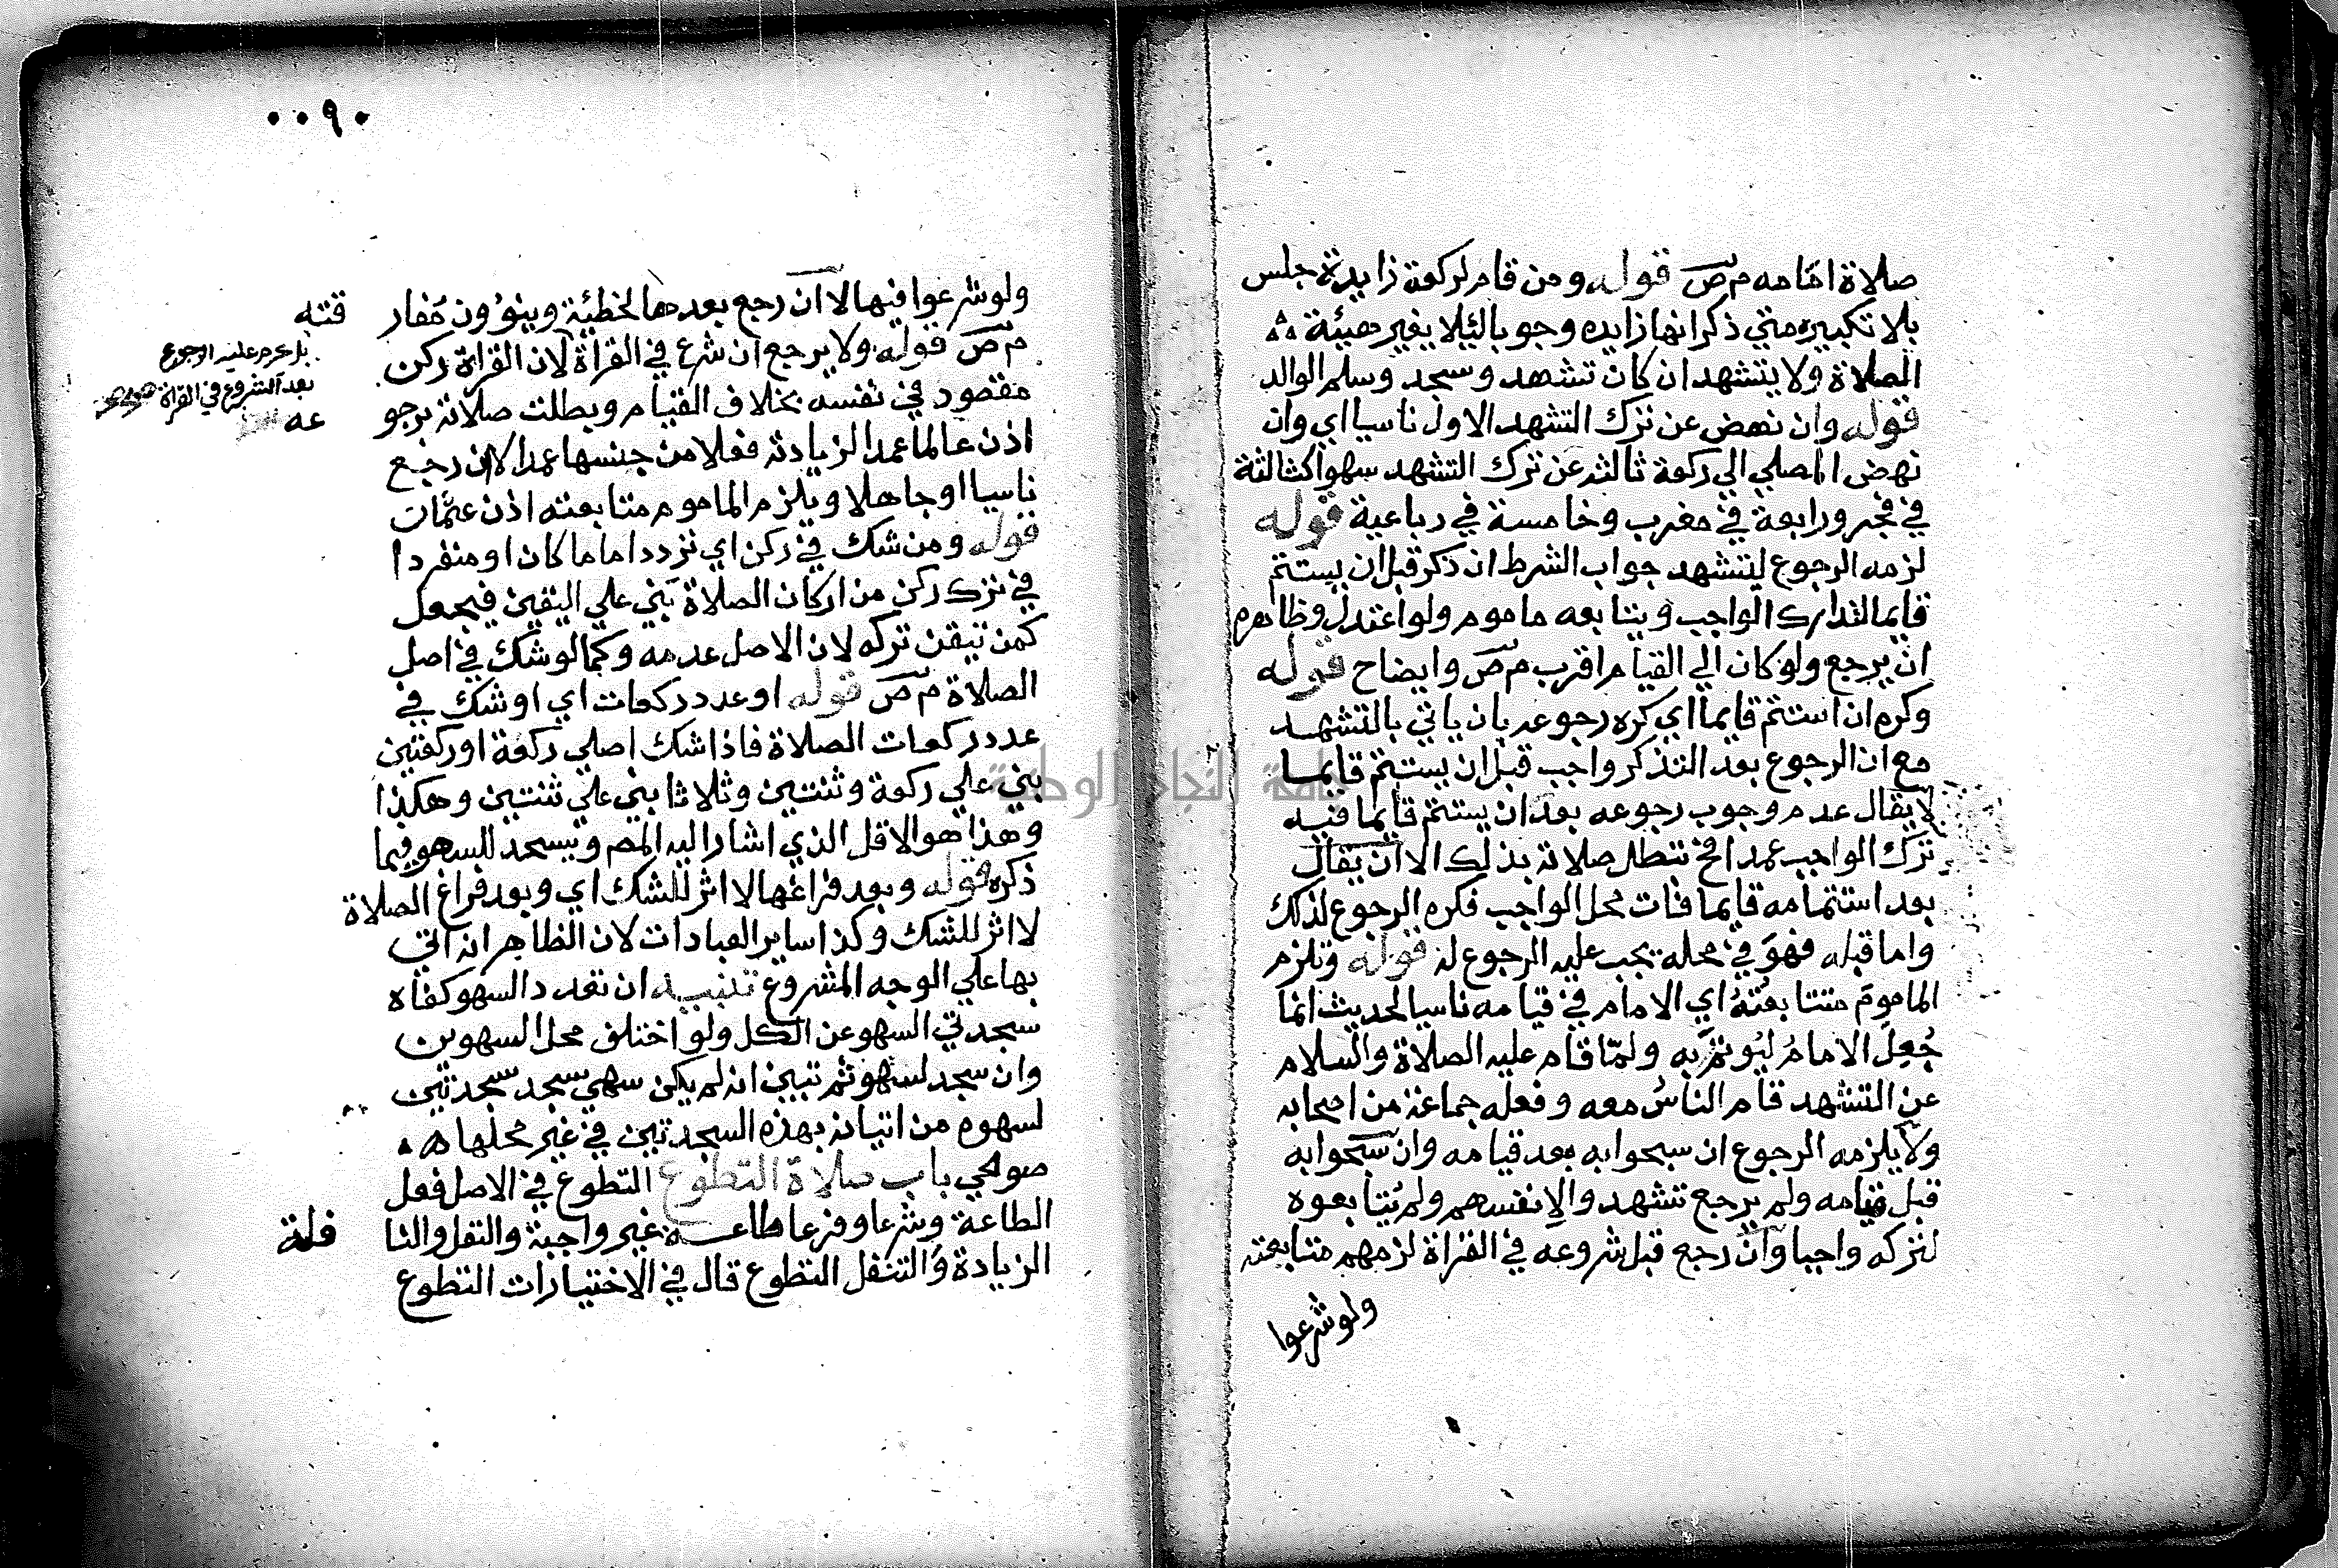 صلاة امامه م ص قوله ومن قام لركعة زايدة جلس
بلا تكبيره متي ذكر انها زايده وجوبا ليلا يغير هيئة
الصلاة ولا يتشهد ان كان تشهد وسجد وسلم الوالد
قوله وان نهض عن ترك التشهد الاول ناسيا اي وان
نهض المصلي الي ركعة ثالثه عن ترك التشهد سهوا كثالثة
في فجر ورابعة في مغرب وخامسة في رباعية قوله
لزمه الرجوع ليتشهد جواب الشرط ان ذكر قبل ان يستتم
قايما لتدارك الواجب ويتابعه ماموم ولو اعتدل وظاهره
ان يرجع ولو كان الي القيام اقرب م ص وايضاح قوله
وكره ان استتم قايما اي كره رجوعه بان ياتي بالتشهد
مع ان الرجوع بعد التذكر واجب قبل ان يستتم قايما
لا يقال عدم وجوب رجوعه بعد ان يستتم قايما فيه
ترك الواجب عمدا فح تبطل صلاته بذلك الا ان يقال
بعد استتمامه قايما فات محل الواجب فكره الرجوع لذلك
واما قبله فهو في محله يجب عليه الرجوع له قوله وتلزم
الماموم متتابعته اي الامام في قيامه ناسيا لحديث انما
جعل الامام ليوتم به ولما قام عليه الصلاة والسلام
عن التشهد قام الناس معه وفعله جماعة من اصحابه
ولا يلزمه الرجوع ان سبحوا به بعد قيامه وان سبحوا به
قبل قيامه ولم يرجع تشهدوا لانفسهم ولم يتابعوه
لتركه واجبا وان رجع قبل شروعه في القراة لزمهم متابعته
ولو شرعوا
٠٠٩٠
ولو شرعوا فيها لا ان رجع بعدها لخطيئة وينوون مفار قته
م ص قوله ولا يرجع ان شرع في القراة لان القراة ركن
مقصود في نفسه بخلاف القيام وبطلت صلاته برجو عه
اذن عالما عمدا لزيادته فعلا من جنسها عمدا لا ان رجع
ناسيا او جاهلا ويلزم الماموم متابعته اذن عثمان
قوله ومن شك في ركن اي تردد اماما كان او منفردا
في ترك ركن من اركان الصلاة بني علي اليقين فيجعل
كمن تيقن تركه لان الاصل عدمه وكما لو شك في اصل
الصلاة م ص قوله او عدد ركعات اي او شك في
عدد ركعات الصلاة فاذا شك اصلي ركعة او ركعتين
بني علي ركعة وثنتين وثلاثا بني علي ثنتين وهكذا
وهذا هو الاقل الذي اشار اليه المص ويسجد للسهو فيما
ذكره قوله وبعد فراغها لا اثر للشك اي وبعد فراغ الصلاة
لا اثر للشك وكذا ساير العبادات لان الظاهر انه اتي
بها علي الوجه المشروع تنبيه ان تعدد السهو كفاه
سجدتي السهو عن الكل ولو اختلف محل السهوين
وان سجد لسهو ثم تبين انه لم يكن سهي سجد سجدتين
لسهوه من اتيانه بهذه السجدتين في غير محلها ه
صوالحي باب صلاة التطوع التطوع في الاصل فعل
الطاعة وشرعا وفرعا طاعة غير واجبة والنفل والنا فلة
الزيادة والتنفل التطوع قال في الاختيارات التطوع
بل حرم عليه الرجوع
بعد الشروع في القراة